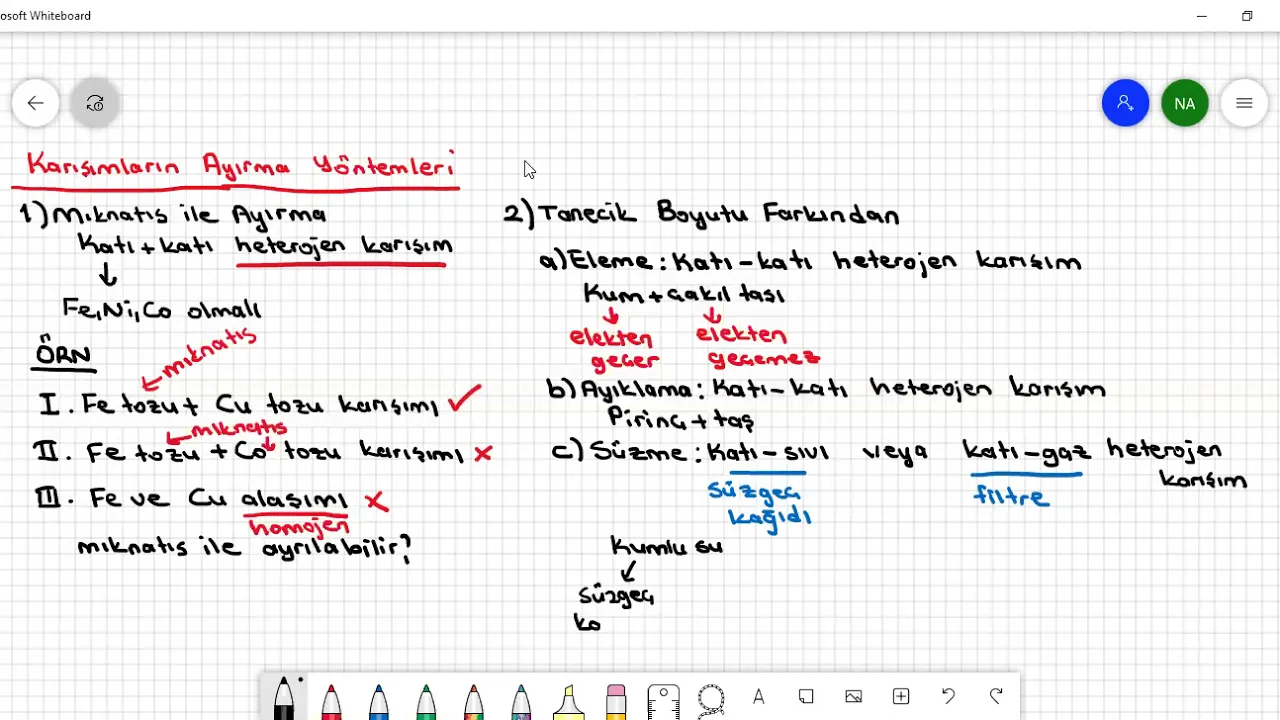 osoft Whiteboard
NA
Karışımların Ayırma Yöntemleri
1) Mıknatıs ile Ayırma
Katı + katı heterojen karışım
Fe, Ni, Co olmalı
ÖRN
mıknatıs
I. Fe tozu + Cu tozu karışımı ✓
mıknatıs
II. Fe tozu + Co tozu karışımı x
III. Fe ve Cu alaşımı x
homojen
mıknatıs ile ayrılabilir?
2) Tanecik Boyutu Farkından
a) Eleme: Katı - katı heterojen karışım
Kum + çakıl taşı
elekten elekten
geçer geçemez
b) Ayıklama: Katı - katı heterojen karışım
Pirinç + taş
c) Süzme: Katı - sıvı veya katı - gaz heterojen
karışım
süzgeç filtre
kağıdı
Kumlu su
süzgeç
ka
A